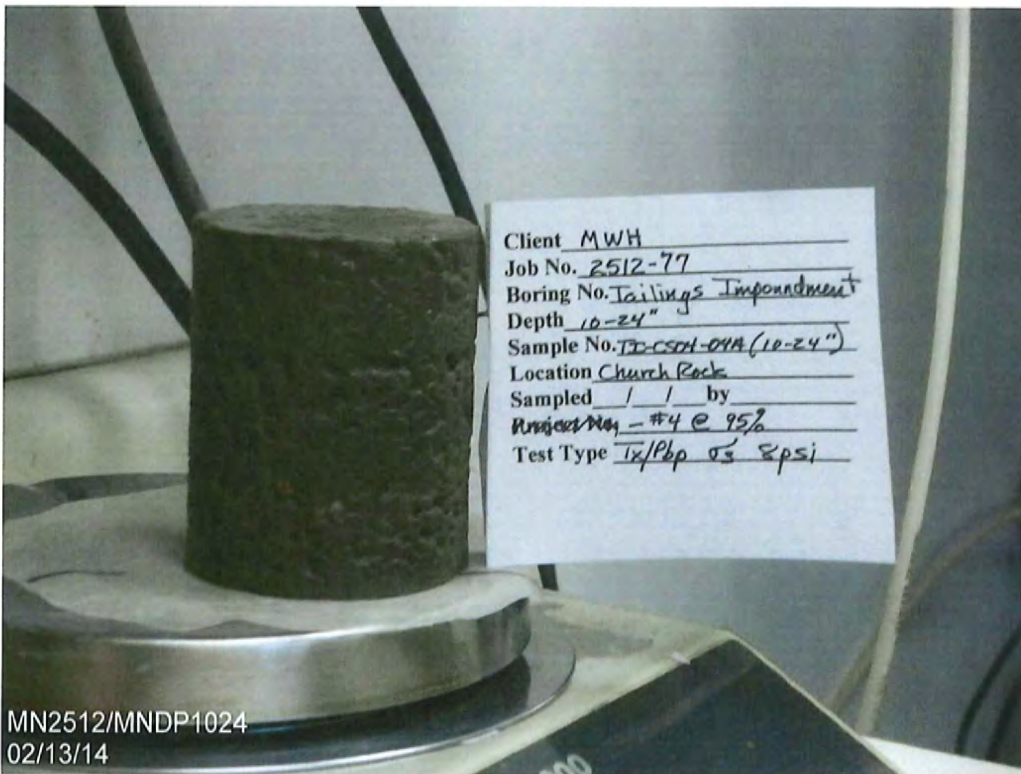 Client MWH
Job No. 2512-77
Boring No. Tailings Impoundment
Depth 10-24"
Sample No. TI-CS04-04A (10-24")
Location Church Rock
Sampled / / by
- #4 @ 95%
Test Type Tx/Pbp σ̄3 8psi
MN2512/MNDP1024
02/13/14